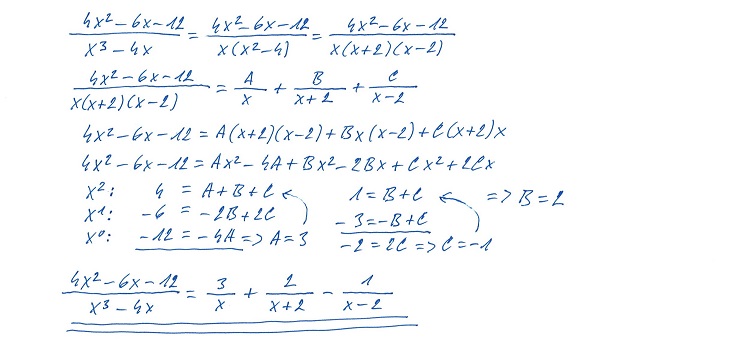 (4x² − 6x − 12)/(x³ − 4x) = (4x² − 6x − 12)/(x(x² − 4)) = (4x² − 6x − 12)/(x(x+2)(x−2))
(4x² − 6x − 12)/(x(x+2)(x−2)) = A/x + B/(x+2) + C/(x−2)
4x² − 6x − 12 = A(x+2)(x−2) + Bx(x−2) + C(x+2)x
4x² − 6x − 12 = Ax² − 4A + Bx² − 2Bx + Cx² + 2Cx
x²: 4 = A+B+C 1 = B+C => B = 2
x¹: −6 = −2B+2C −3 = −B+C
x⁰: −12 = −4A => A = 3 −2 = 2C => C = −1
(4x² − 6x − 12)/(x³ − 4x) = 3/x + 2/(x+2) − 1/(x−2)